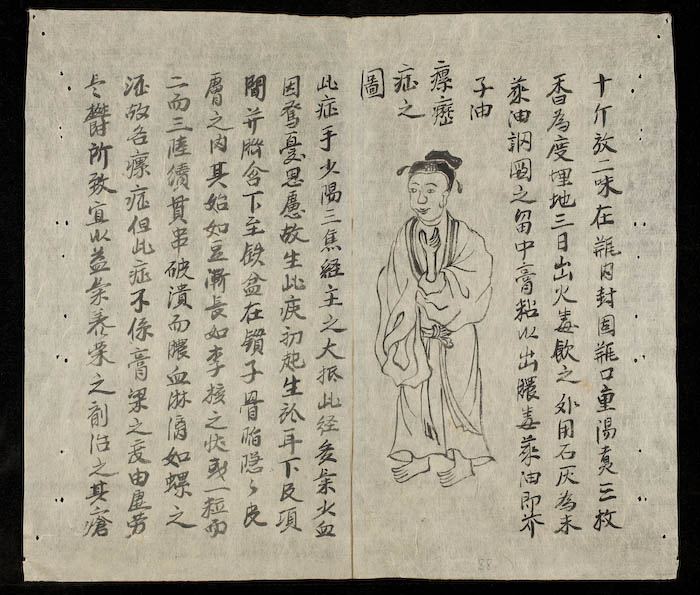 十斤放二味在瓶内封固瓶口重陽煑三枚
香為度埋地三日出火毒飲之外用石灰為末
菜油調圈之留中膏粘以出膿毒菜油即芥
子油
瘰癧
症之
圖
此症手少陽三焦經主之大抵此經多氣火血
因驚憂思慮故生此疾初起生於耳下及項
間并含下至鉄盆在鎖子骨陷隱々皮
膚之内其始如豆漸長如李核之狀或一粒而
二而三陸續貫串破潰而膿血淋漓如螺之
症故名瘰症但此症不係膏粱之度由虛勞
鬱所致宜以益氣養榮之劑治之其瘡
88